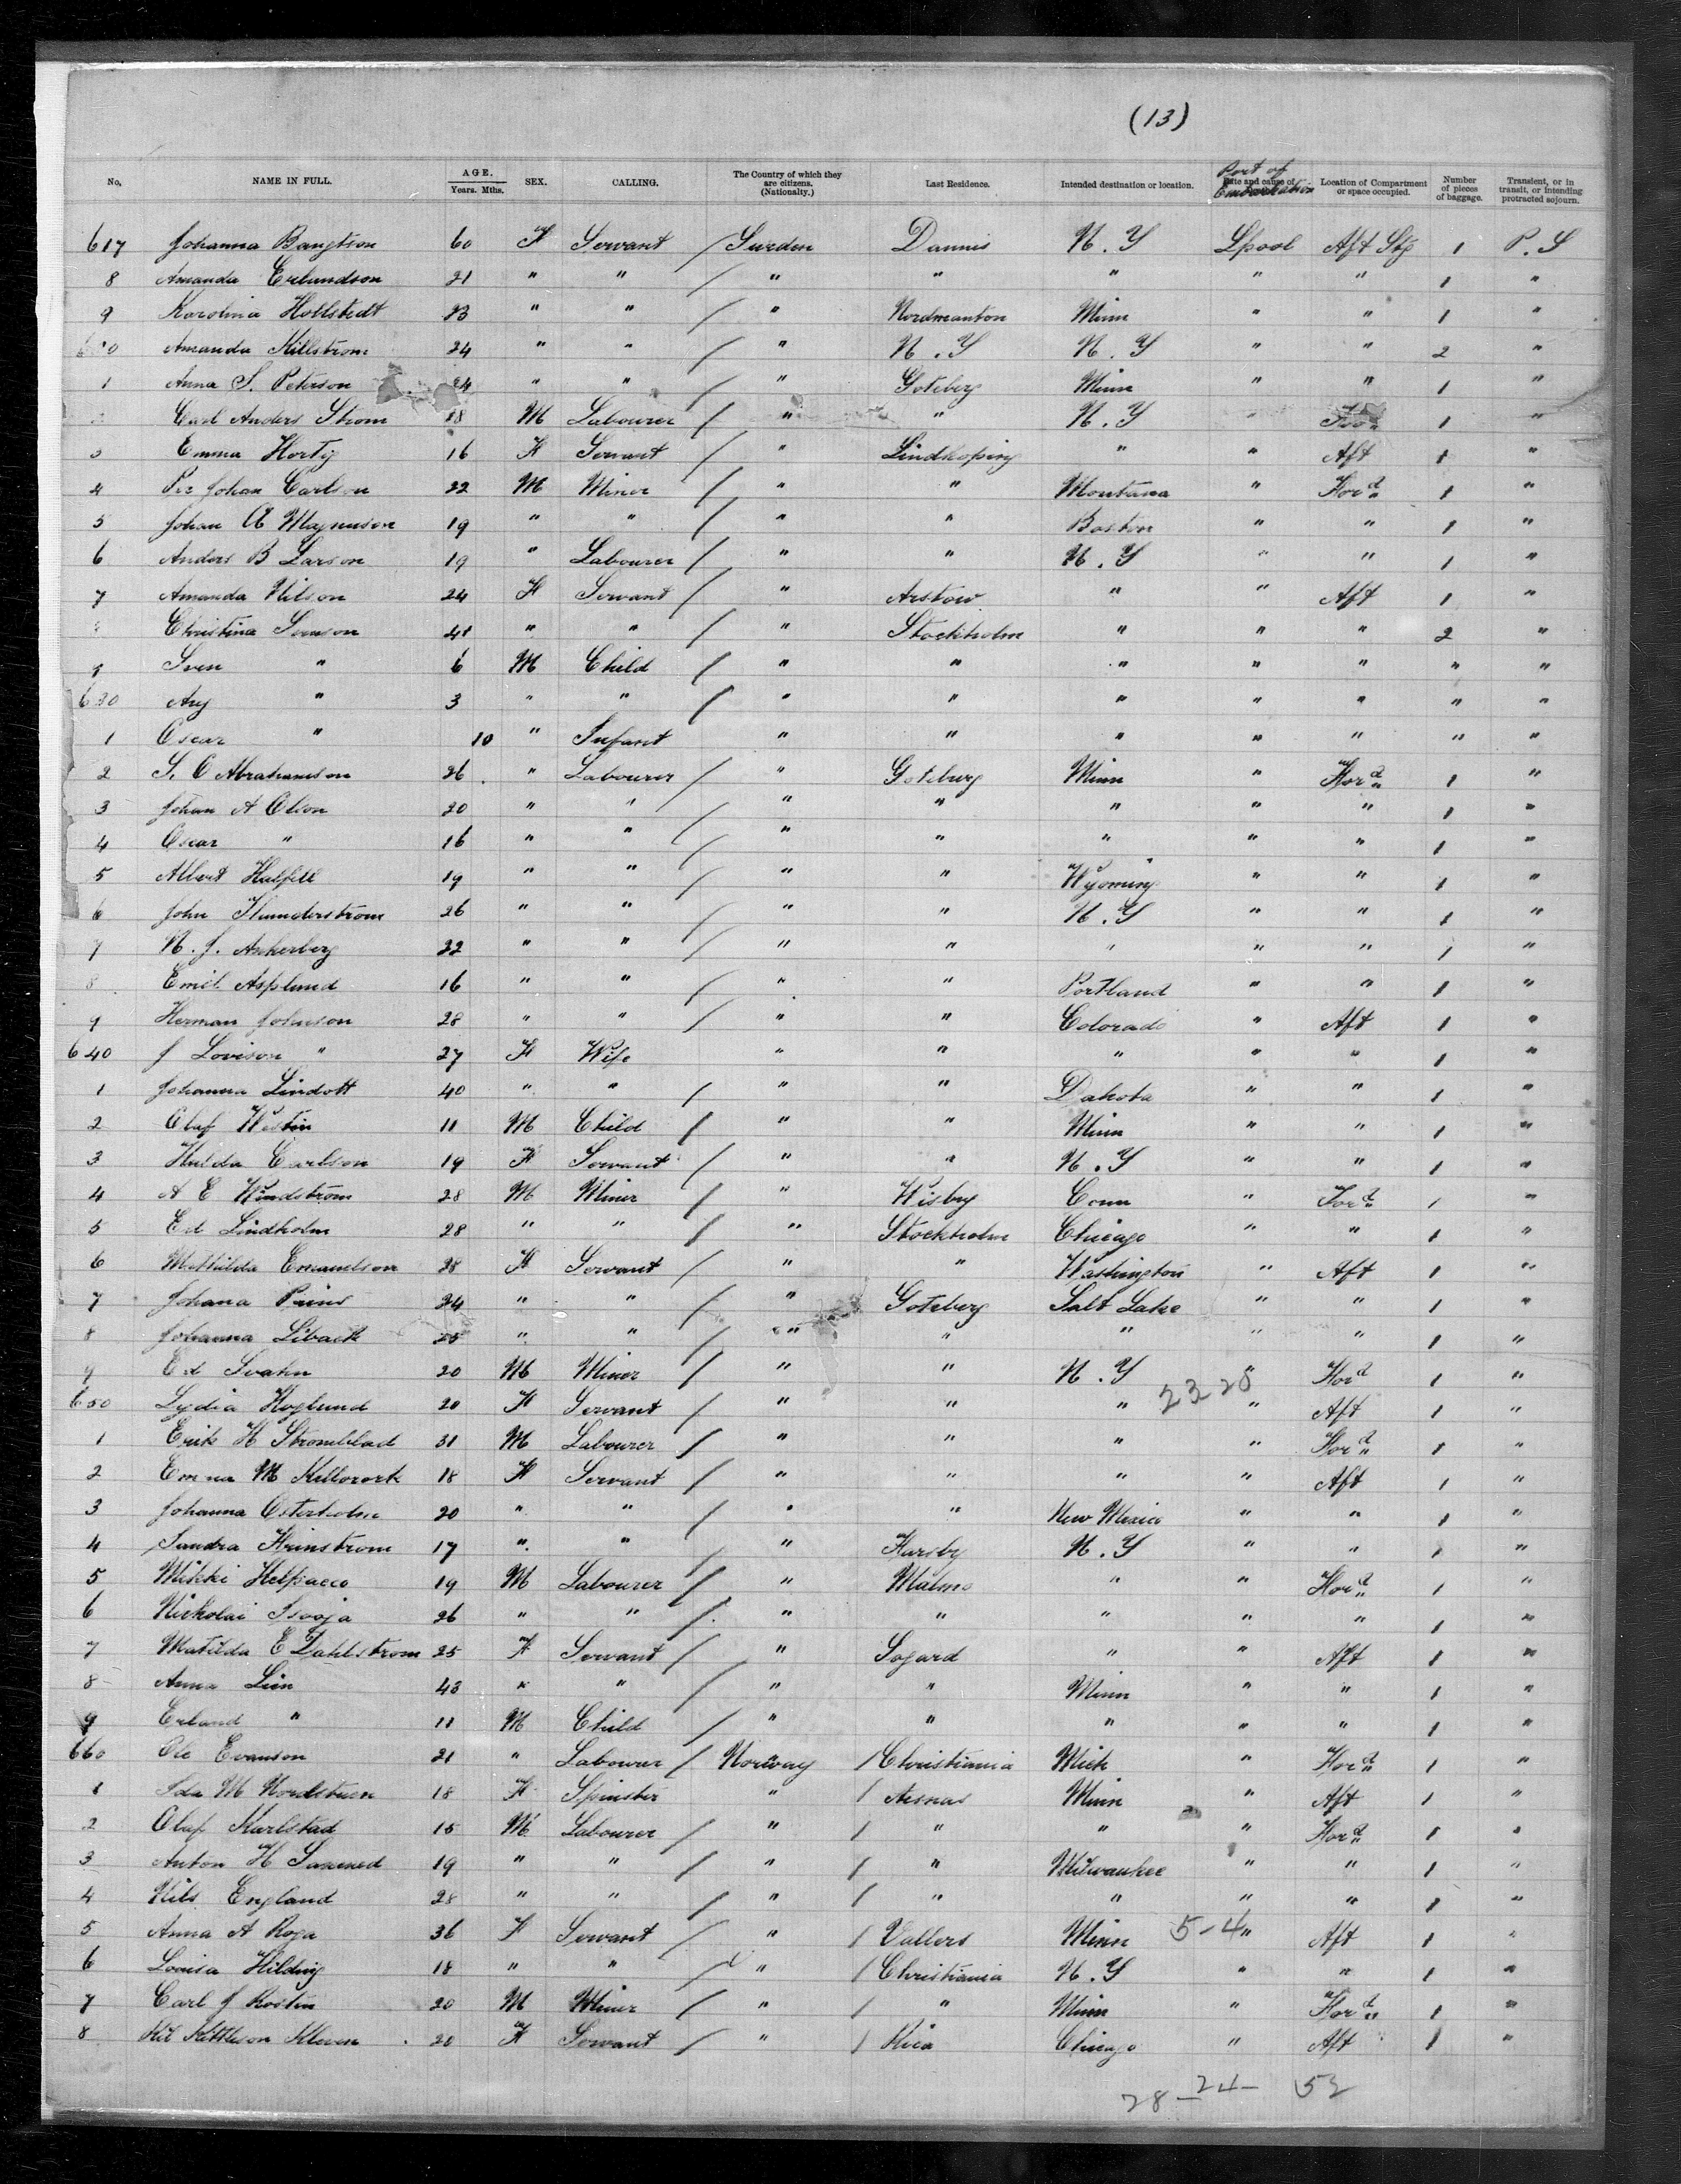 (13)
No. NAME IN FULL. AGE. Years. Mths. SEX. CALLING. The Country of which they are citizens. (Nationalty.) Last Residence. Intended destination or location. Port of Embarkation Date and cause of Location of Compartment or space occupied. Number of pieces of baggage. Transient, or in transit, or intending protracted sojourn.
617 Johanna Bangtson 60 F Servant / Sweden Dannis N.Y Lpool Aft Stg 1 P.S
8 Amanda Erlundson 21 " " / " " " " " 1 "
9 Karolina Hollstedt 23 " " / " Nordmanton Minn " " 1 "
620 Amanda Killstrom 24 " " / " N.Y N.Y " " 2 "
1 Anna S. Peterson 24 " " / " Goteberg Minn " " 1 "
Carl Anders Strom 18 M Labourer / " " N.Y " 1 "
3 Emma Hortig 16 F Servant / " Lindkoping " " Aft 1 "
4 Per Johan Carlson 22 M Miner / " " Montana " For'd 1 "
5 Johan A Magnuson 19 " " / " " Boston " " 1 "
6 Anders B Larson 19 " Labourer / " " N.Y " " 1 "
7 Amanda Nilson 24 F Servant / " Arstow " " Aft 1 "
Christina Svenson 41 " " / " Stockholm " " " 2 "
9 Sven " 6 M Child / " " " " " " "
630 Any " 3 " " / " " " " " " "
1 Oscar " 10 " Infant " " " " " " "
2 S. O Abrahamson 26 " Labourer / " Goteburg Minn " For'd 1 "
3 Johan A Olson 20 " " / " " " " " 1 "
4 Oscar " 16 " " / " " " " " 1 "
5 Albert Halfell 19 " " / " " Wyoming " " 1 "
6 John Thunderstrom 26 " " / " " N.Y " " 1 "
7 N. J. Ankerberg 22 " " / " " " " " 1 "
8 Emil Asplund 16 " " / " " Portland " " 1 "
9 Herman Johnson 28 " " / " " Colorado " Aft 1 "
640 J Lovison " 27 F Wife " " " " " 1 "
1 Johanna Lindott 40 " " / " " Dakota " " 1 "
2 Olaf Westin 11 M Child / " " Minn " " 1 "
3 Hulda Carlson 19 F Servant / " " N.Y " " 1 "
4 A E Windstrom 28 M Miner / " Wisby Conn " For'd 1 "
5 Ed Lindholm 28 " " / " Stockholm Chicago " " 1 "
6 Mathilda Emanuelson 28 F Servant / " " Washington " Aft 1 "
7 Johana Prins 24 " " / " Goteberg Salt Lake " " 1 "
8 Johanna Liback 25 " " / " " " " " 1 "
9 Ed Svahn 20 M Miner / " " N.Y 23 28 " For'd 1 "
650 Lydia Hoglund 20 F Servant / " " " " Aft 1 "
1 Erik H Stromblad 31 M Labourer / " " " " For'd 1 "
2 Emma M Killorork 18 F Servant / " " " " Aft 1 "
3 Johanna Osterholm 20 " " / " " New Mexico " " 1 "
4 Sandra Heinstrom 17 " " / " Karsby N.Y " " 1 "
5 Mikki Helpacco 19 M Labourer / " Malmo " " For'd 1 "
6 Nickolai Isooja 26 " " / " " " " " 1 "
7 Matilda E Dahlstrom 25 F Servant / " Sogard " " Aft 1 "
8 Anna Lien 43 " " / " " Minn " " 1 "
9 Erland " 11 M Child / " " " " " 1 "
660 Ole Evanson 21 " Labourer / Norway / Christiania Mich " For'd 1 "
1 Ida M Nordstuen 18 F Spinster " / Aesnas Minn " Aft 1 "
2 Olaf Karlstad 15 M Labourer / " / " " " For'd 1 "
3 Anton H 19 " " / " / " Milwaukee " " 1 "
4 Nils England 28 " " / " / " " " " 1 "
5 Anna A Roga 36 F Servant / " / Vallers Minn 5-4 " Aft 1 "
6 Lovisa Hilding 18 " " / " / Christiania N.Y " " 1 "
7 Carl J Rostin 20 M Miner / " / " Minn " For'd 1 "
8 Kittleson Kleven 20 F Servant / " / Rica Chicago " Aft 1 "
28-24- 52